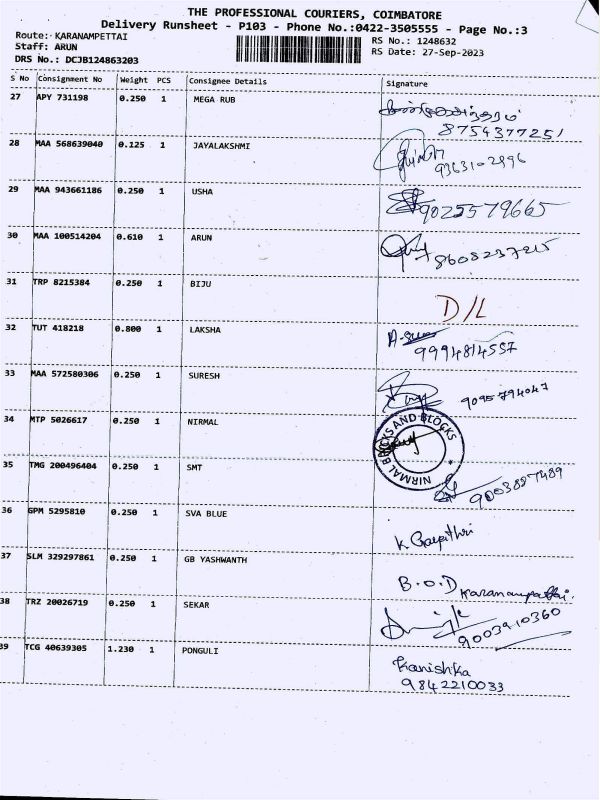 THE PROFESSIONAL COURIERS, COIMBATORE
Delivery Runsheet - P103 - Phone No.:0422-3505555 - Page No.:3
Route: KARANAMPETTAI
RS No.: 1248632
Staff: ARUN
RS Date: 27-Sep-2023
DRS No.: DCJB124863203
S No Consignment No Weight PCS Consignee Details Signature
27 APY 731198 0.250 1 MEGA RUB
8754377251
28 MAA 568639040 0.125 1 JAYALAKSHMI
9363102996
29 MAA 943661186 0.250 1 USHA
9025579665
30 MAA 100514204 0.610 1 ARUN
31 TRP 8215384 0.250 1 BIJU
D/L
32 TUT 418218 0.800 1 LAKSHA
9994814557
33 MAA 572580306 0.250 1 SURESH
9095794047
34 MTP 5026617 0.250 1 NIRMAL
NIRMAL BRICKS AND BLOCKS
35 TMG 200496404 0.250 1 SMT
9003887489
36 GPM 5295810 0.250 1 SVA BLUE
K. Gayithri
37 SLM 329297861 0.250 1 GB YASHWANTH
B.O.D Karanampattai.
38 TRZ 20026719 0.250 1 SEKAR
9003910360
39 TCG 40639305 1.230 1 PONGULI
Kanishka
9842210033